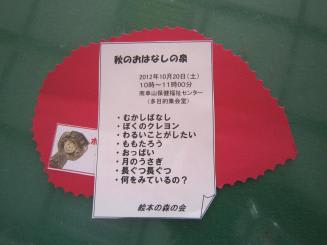 秋のおはなしの泉
2012年10月20日(土)
10時〜11時00分
南車山保健福祉センター
(多目的集会室)
・むかしばなし
・ぼくのクレヨン
・わるいことがしたい
・ももたろう
・おっぱい
・月のうさぎ
・長ぐつ長ぐつ
・何をみているの?
絵本の森の会